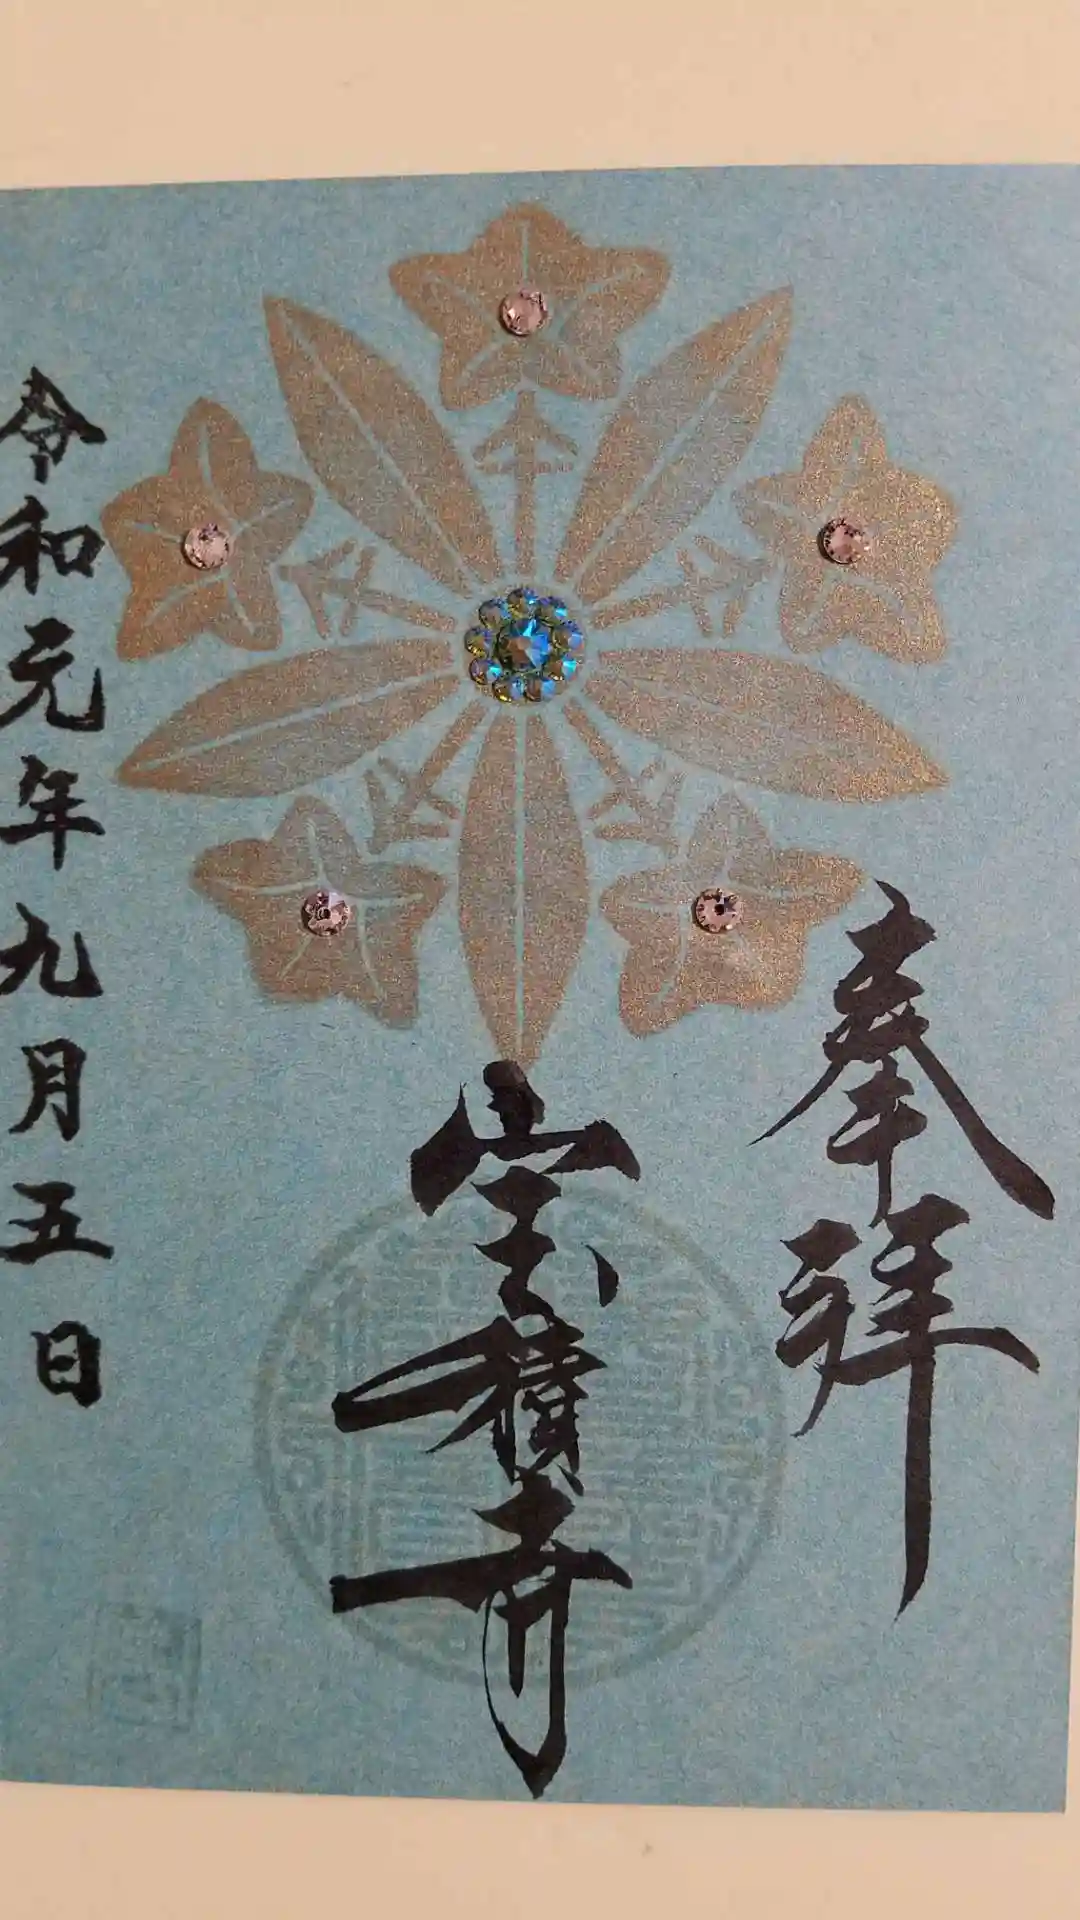 奉拜
宝積寺
令和元年九月五日